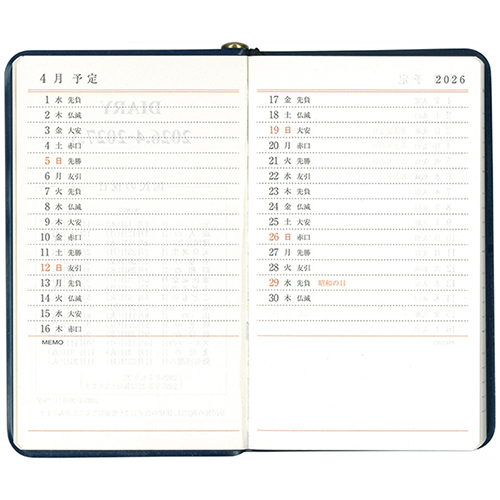 4月 予定
1 水 先負
2 木 仏滅
3 金 大安
4 土 赤口
5 日 先勝
6 月 友引
7 火 先負
8 水 仏滅
9 木 大安
10 金 赤口
11 土 先勝
12 日 友引
13 月 先負
14 火 仏滅
15 水 大安
16 木 赤口
MEMO
2026
17 金 先負
18 土 仏滅
19 日 大安
20 月 赤口
21 火 先勝
22 水 友引
23 木 先負
24 金 仏滅
25 土 大安
26 日 赤口
27 月 先勝
28 火 友引
29 水 先負 昭和の日
30 木 仏滅